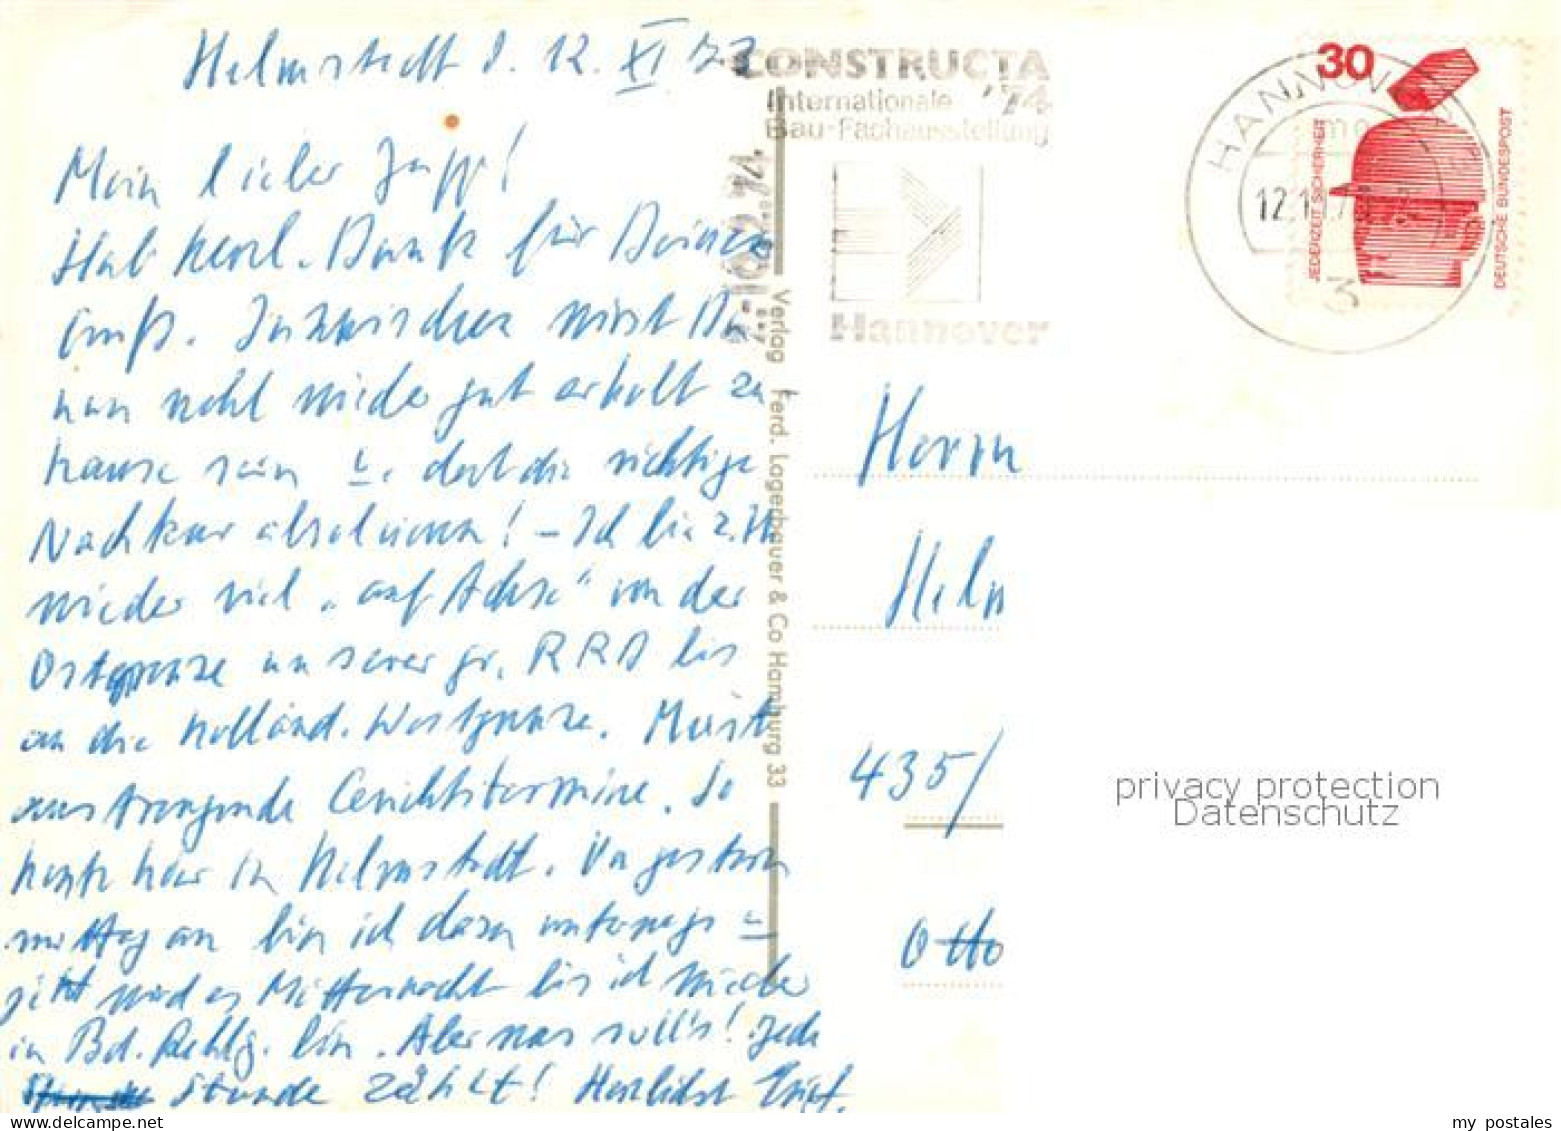 Helmstedt d. 12. XI 73
Mein lieber Jupp!
Hab herzl. Dank für Deinen
Gruß. Inzwischen wirst Du
nun wohl wieder gut erholt zu
hause sein u. dort die richtige
Nachkur absolvieren! – Ich bin z. Zt.
wieder viel „auf Achse" von der
Ostgrenze unserer gr. BRD bis
an die holländ. Westgrenze. Meist
anstrengende Gerichtstermine. So
heute hier in Helmstedt. Von gestern
mittag an bin ich dazu unterwegs u.
jetzt wird es Mitternacht bis ich wieder
in Bd. Rehbg. bin. Aber was soll's! Jede
Stunde zählt! Herzlichst
Verlag Ferd. Lagerbauer & Co Hamburg 33
CONSTRUCTA
Internationale '74
Bau-Fachausstellung
Hannover
HANNOVER
3
30
JEDERZEIT SICHERHEIT
DEUTSCHE BUNDESPOST
Herrn
Helm
435/
Otto
privacy protection
Datenschutz
my postales